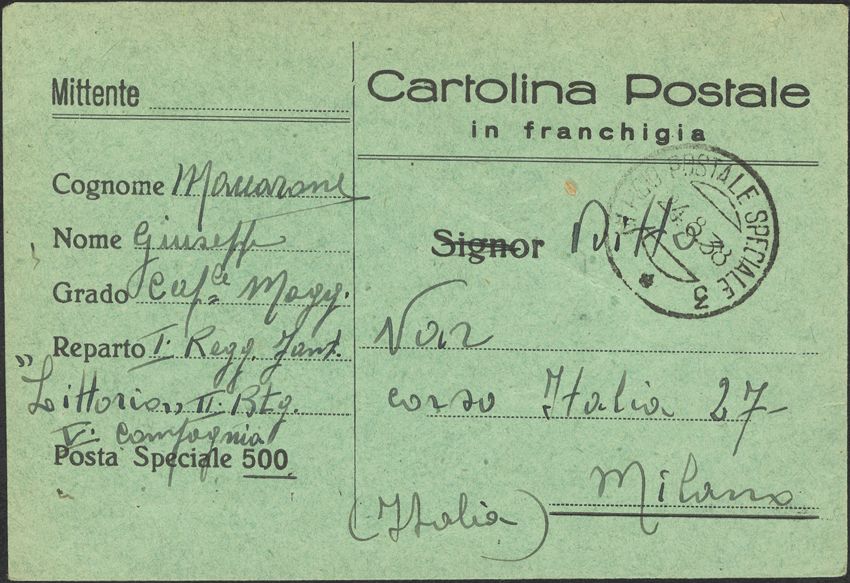 Mittente
Cognome Maccarone
Nome Giuseppe
Grado Cap.le Magg.
Reparto I. Regg. Fant.
"Littorio,, II. Btg.
V. Compagnia
Posta Speciale 500
Cartolina Postale
in franchigia
Signor Ditta
Var
corso Italia 27-
Milano
(Italia)
UFFICIO POSTALE SPECIALE 3
24.8.38